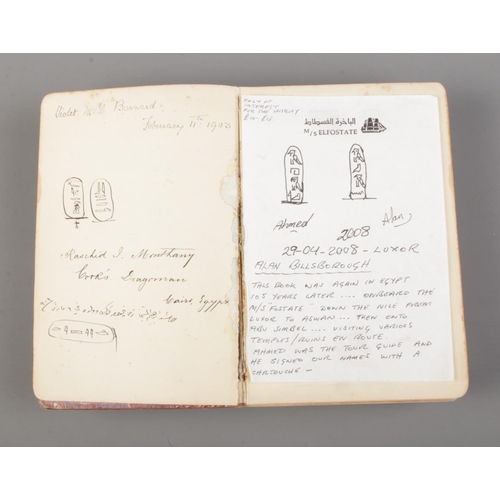 Violet
February 11th 1903
Raschid I. Monthany
Cook's Dragoman
Cairo, Egypt
الباخرة الفسطاط
M/S ELFOSTATE
Ahmed
Alan
2008
29-04-2008 - LUXOR
ALAN BILLSBOROUGH
THIS BOOK WAS AGAIN IN EGYPT
105 YEARS LATER .... ONBOARD THE
M/S "FOSTATE" DOWN THE NILE FROM
LUXOR TO ASWAN ... THEN ONTO
ABU SIMBEL .... VISITING VARIOUS
TEMPLES/RUINS EN ROUTE.
AHMED WAS THE TOUR GUIDE AND
HE SIGNED OUR NAMES WITH A
CARTOUCHE -